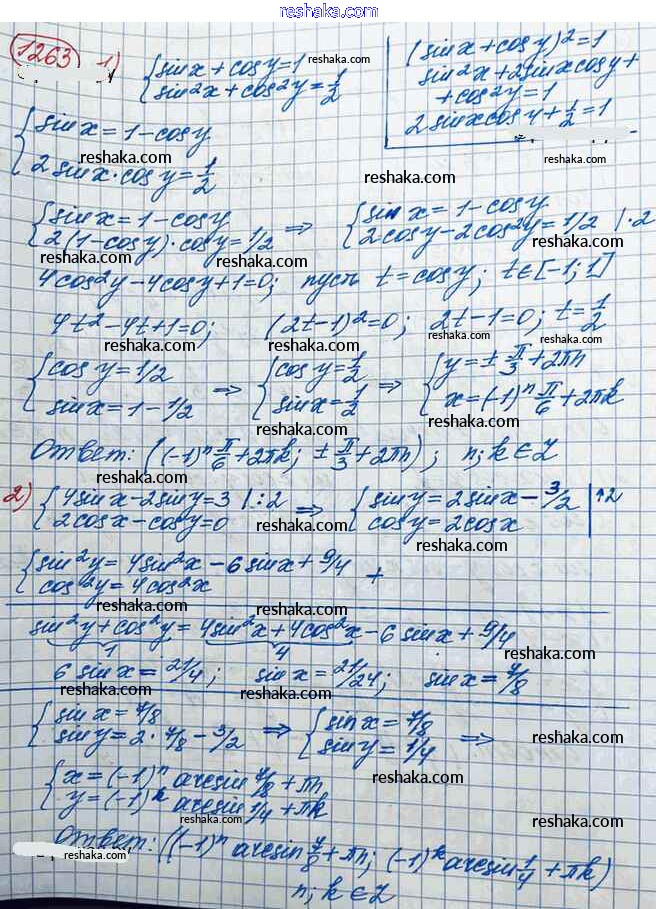 reshaka.com
1263 1) {sin x + cos y = 1 reshaka.com
{sin²x + cos²y = 1/2
(sin x + cos y)² = 1
sin²x + 2 sin x cos y +
+ cos²y = 1
2 sin x cos y + 1/2 = 1
reshaka.com
{sin x = 1 - cos y
reshaka.com
{2 sin x · cos y = 1/2
reshaka.com
{sin x = 1 - cos y
{2(1 - cos y) · cos y = 1/2 ⇒ {sin x = 1 - cos y
{2 cos y - 2 cos²y = 1/2 | · 2
reshaka.com reshaka.com reshaka.com
4 cos²y - 4 cos y + 1 = 0; пусть t = cos y; t ∈ [-1; 1]
4t² - 4t + 1 = 0; (2t - 1)² = 0; 2t - 1 = 0; t = 1/2
reshaka.com reshaka.com
{cos y = 1/2
{sin x = 1 - 1/2 ⇒ {cos y = 1/2
{sin x = 1/2 ⇒ {y = ± π/3 + 2πn
{x = (-1)ⁿ π/6 + 2πk
reshaka.com reshaka.com reshaka.com
Ответ: ((-1)ⁿ π/6 + 2πk; ± π/3 + 2πn); n; k ∈ Z
reshaka.com reshaka.com
2) {4 sin x - 2 sin y = 3 | : 2
{2 cos x - cos y = 0 ⇒ {sin y = 2 sin x - 3/2
{cos y = 2 cos x | ↑2
reshaka.com reshaka.com
{sin²y = 4 sin²x - 6 sin x + 9/4
{cos²y = 4 cos²x +
reshaka.com reshaka.com
sin²y + cos²y = 4 sin²x + 4 cos²x - 6 sin x + 9/4
1 4 reshaka.com
6 sin x = 21/4; sin x = 21/24; sin x = 7/8
reshaka.com reshaka.com
{sin x = 7/8
{sin y = 2 · 7/8 - 3/2 ⇒ {sin x = 7/8
{sin y = 1/4 ⇒
reshaka.com reshaka.com
{x = (-1)ⁿ arcsin 7/8 + πn
{y = (-1)ᵏ arcsin 1/4 + πk
reshaka.com reshaka.com
Ответ: ((-1)ⁿ arcsin 7/8 + πn; (-1)ᵏ arcsin 1/4 + πk)
reshaka.com reshaka.com reshaka.com
n; k ∈ Z